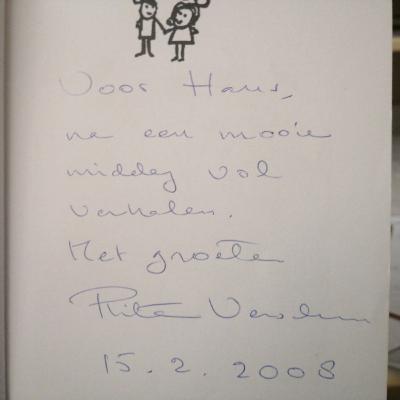 Voor Hans,
na een mooie
middag vol
verhalen.
Met groeten
Rita
15.2.2008